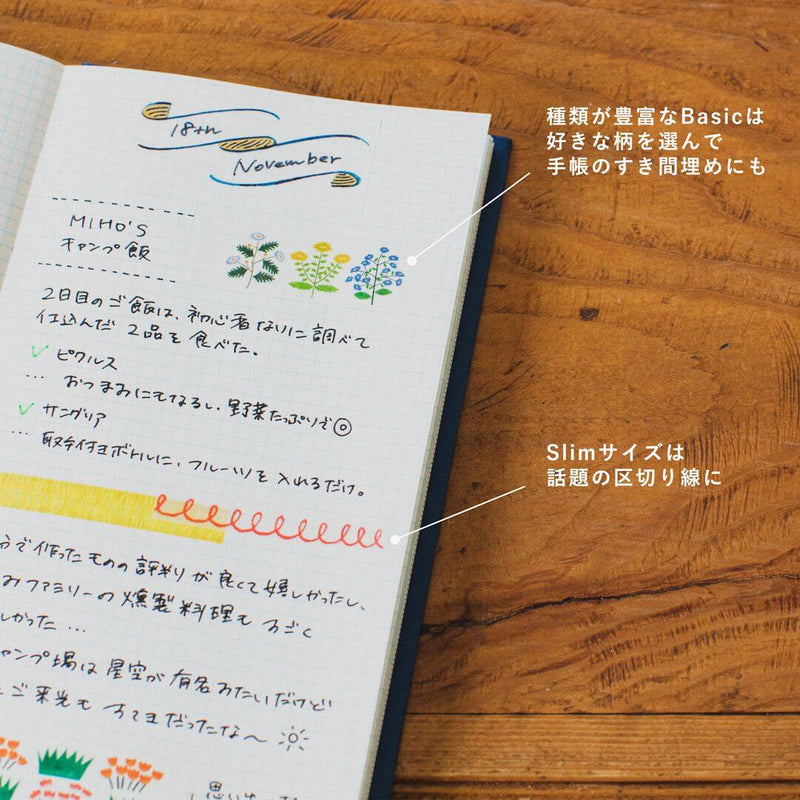 18th
November
MIHO'S
キャンプ飯
2日目のご飯は、初心者なりに調べて
仕込んだ 2品を 食べた。
ピクルス
… おつまみにもなるし、野菜たっぷりで◎
サングリア
… 取手付きボトルに、フルーツを 入れるだけ。
で作ったものの評判が良くて嬉しかったし、
ファミリーの燻製料理も すごく
しかった …
キャンプ場は 星空が 有名みたいだけど
ご来光も すてきだったな〜
思い
種類が豊富なBasicは
好きな柄を選んで
手帳のすき間埋めにも
Slimサイズは
話題の区切り線に